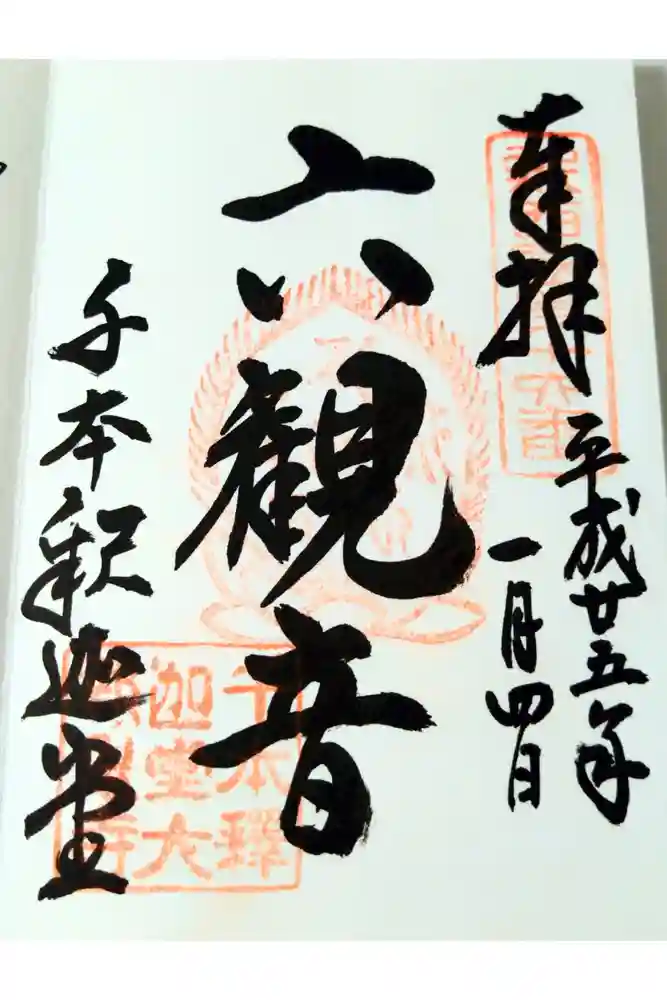 奉拝
平成廿五年
一月四日
六観音
千本釈迦堂
千本釋
迦堂大
報恩寺